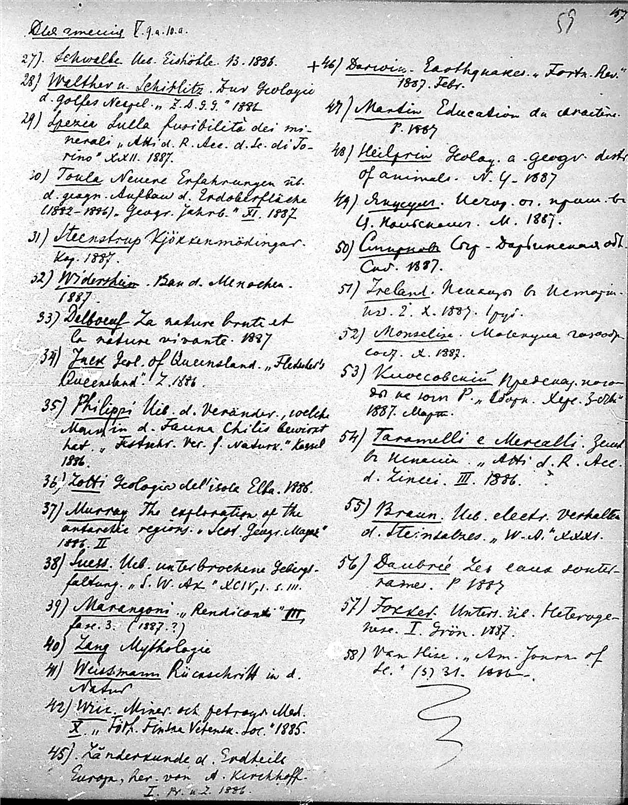 59
Для чтения V. 9.a.10.a.
27). Schwalbe Ueb. Eishöhle. B. 1886.
28) Walther u. Schirlitz. Zur Geologie
d. golfes Neapel. „Z.D.G.G." 1886
29) Spezia Sulla fusibilità dei mi-
nerali „Atti d. R. Acc. d. Sc. di To-
rino" XXII. 1887.
30) Toula Neuere Erfahrungen üb.
d. geogn. Aufbau d. Erdoberfläche
(1882-1886). „Geogr. Jahrb." XI. 1887
31) Steenstrup Kjökkenmödinger.
Kop. 1887.
32) Widersheim. Bau d. Menschen.
1887.
33) Delboeuf La nature brute et
la nature vivante. 1887
34) Jack Geol. of Queensland.
Queensland". Z. 1886.
35) Philippi Ueb. d. Veränder., welche
Mensch in d. Fauna Chilis bewirkt
hat. „Festschr. Ver. f. Naturk." Kassel
1886.
36) Lotti Geologia dell'isola Elba. 1886.
37) Murray The exploration of the
antarctic regions. „Scot. Geogr. Magaz"
1886. II
38) Suess. Ueb. unterbrochene Gebirgs-
faltung. „S. W. Ak" XCIV, 1. S. 111.
39) Marangoni. „Rendiconti" III,
fasc. 3. (1887.?)
40) Lang Mythologie
41) Weissmann Rückschritt in d.
Natur
42) Wiik. Miner. och petrogr. Med.
X. „Förh. Finska Vetensk. Soc." 1885.
45). Länderkunde d. Erdtheils
Europa, her. von A. Kirchhoff.
I. Pr. u Z. 1886
+46) Darwin. Earthquakes. „Fortn. Rev."
1887. Febr.
47) Martin Education du caractère.
P. 1887
48) Heilprin Geolog. a. geogr. distr
of animals. N.Y. 1887
49) Янжул.
М. 1887.
50) Смирнов Сыр-Дарьинская обл.
СПб. 1887.
51) Ireland. Психозы в истории.
X. 1887.
52) Monselise.
X. 1887.
53) Клоссовский Предсказ. пого-
ды на юге Р. „Сборн. Херс. Земства"
1887. Март.
54) Taramelli e Mercalli. Земл.
в Испании. „Atti d. R. Acc.
d. Lincei. III. 1886. ?
55) Braun. Ueb. electr. Verhalten
d. Steinsalzes. „W. A." XXXI.
56) Daubrée Les eaux souter-
raines. P 1887
57) Fokker. Unters. üb. Heteroge-
nese. I. Grön. 1887.
58) Van Hise. „Am. Journ of
Sc." (3) 31. 1886.